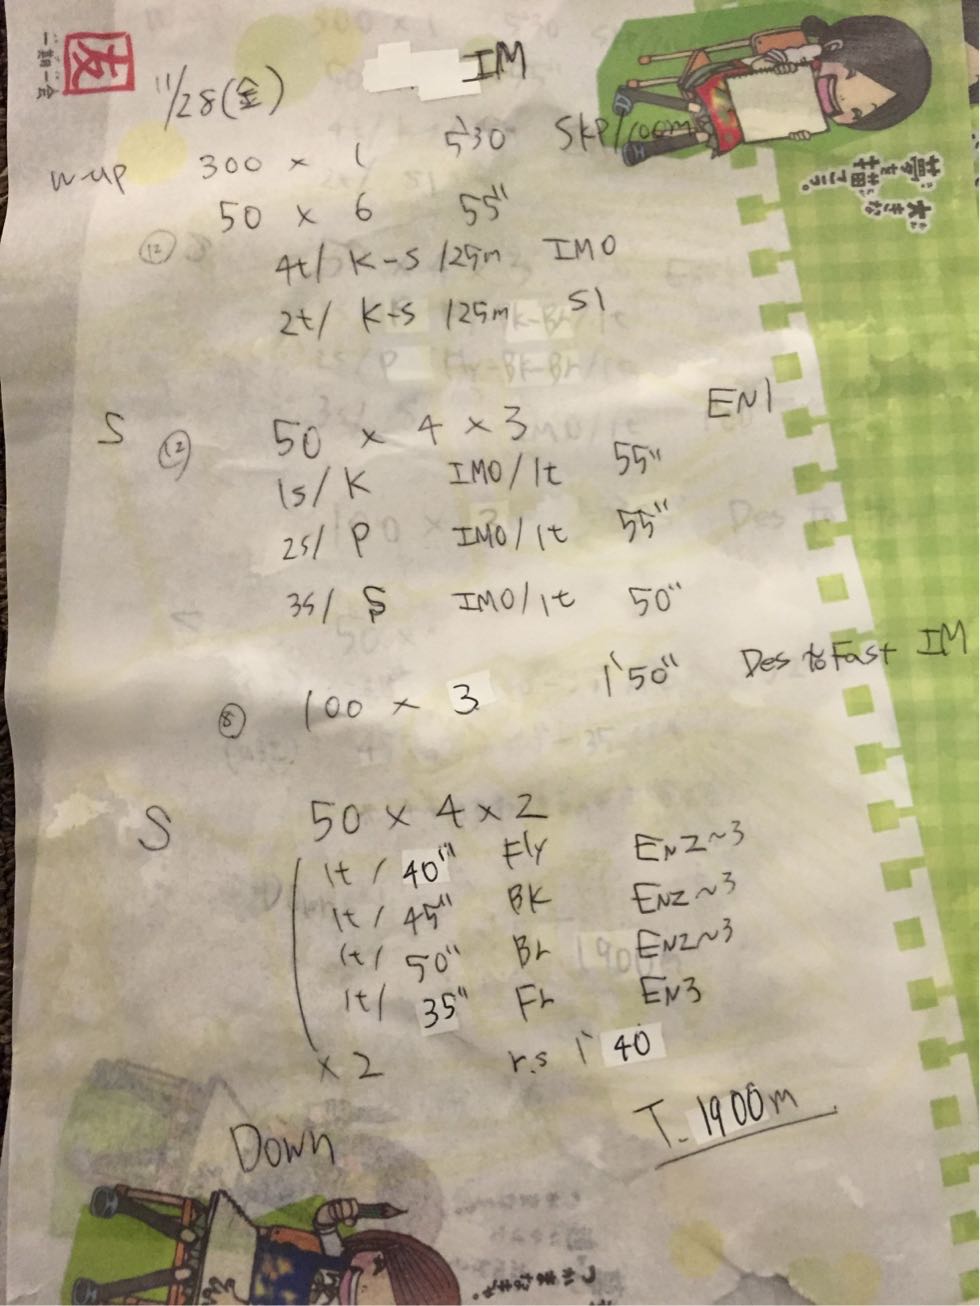 友
一期一会
11/28(金) IM
夢を描こう。
大きな
w-up 300 × 1 5'30 SKP/100m
50 × 6 55"
⑫ 4t/ K-S /25m IMO
2t/ K-S /25m S1
S ⑫ 50 × 4 × 3 EN1
1s/ K IMO/1t 55"
2s/ P IMO/1t 55"
3s/ S IMO/1t 50"
⑧ 100 × 3 1'50" Des to Fast IM
S 50 × 4 × 2
1t / 40" Fly EN2~3
1t / 45" BK EN2~3
1t / 50" Br EN2~3
1t / 35" Fr EN3
× 2 r.s 1'40
T. 1900m
Down